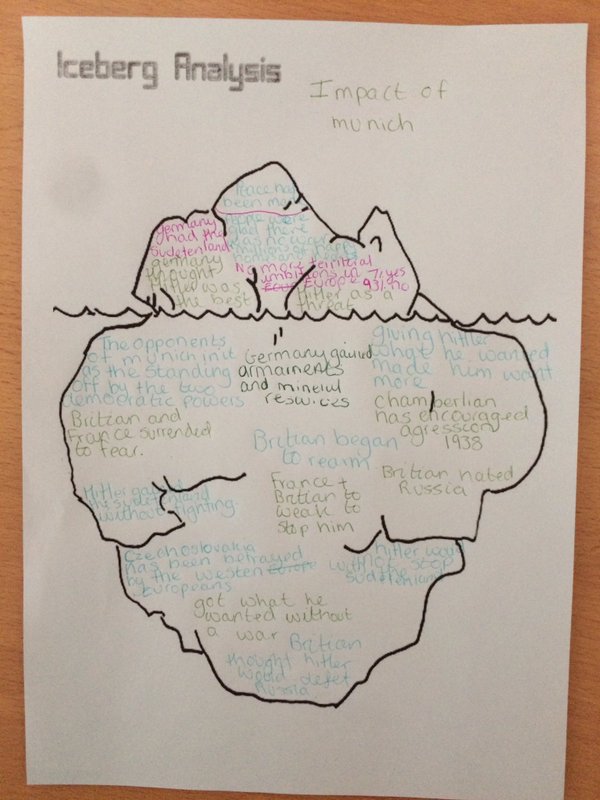 Iceberg Analysis
Impact of
munich
Peace had
been made
People were
glad there
was no war
Germany
had the
Sudetenland
Germany
thought
Hitler was
the best
No more territrial
ambitions in
Europe
7% yes
93% no
Hitler as a
threat
The opponents
of munich
as the standing
off by the two
democratic powers
Britian and
France surrended
to fear.
Germany gained
armaments
and minerul
resources
giving hitler
what he wanted
made him want
more
chamberlian
has encouraged
agression
1938
Britian began
to rearm
Britian hated
Russia
France +
Britian to
weak to
stop him
Hitler gained
the sudetenland
without fighting.
Czechoslovakia
has been betrayed
by the westen Europe
Europeans
hitler would
not stop
with
got what he
wanted without
a war
Britian
thought hitler
would defet
Russia